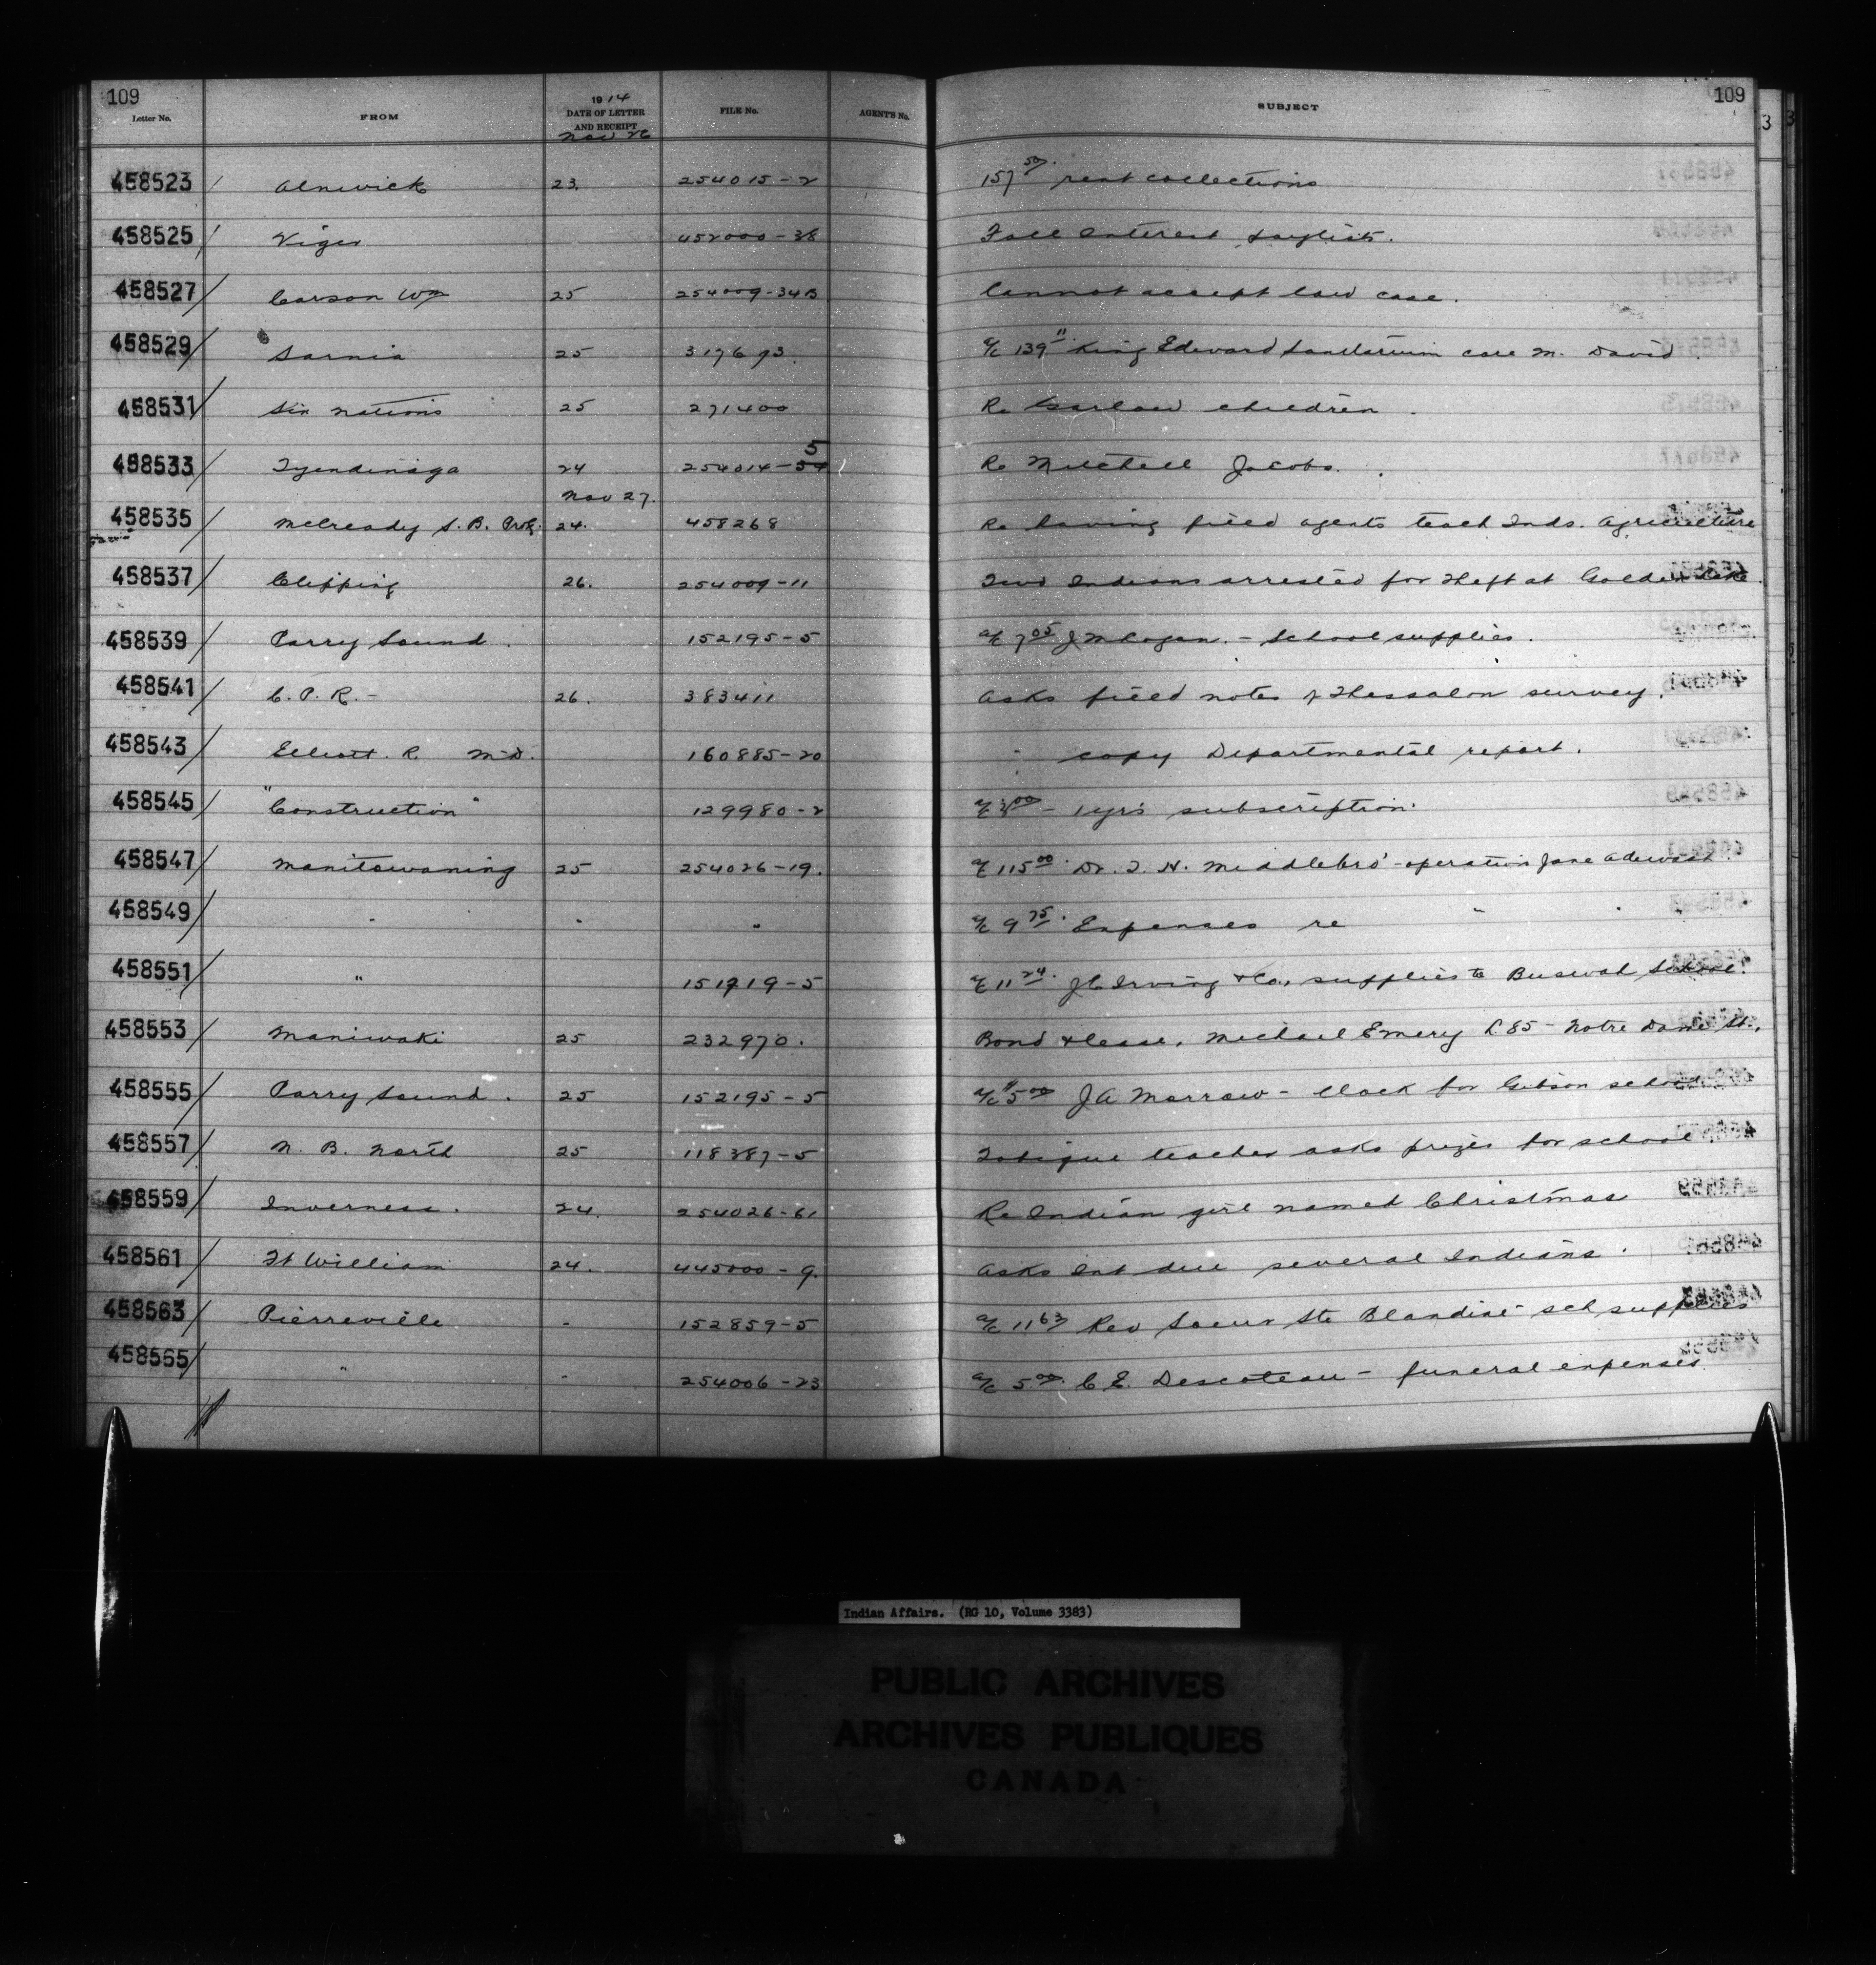 109 109
Letter No. FROM 1914 DATE OF LETTER AND RECEIPT FILE No. AGENT'S No. SUBJECT
Nov 26
458523 / Alnwick 23. 254015-2 157 50. rent collections
458525 / Viger 452000-38 Fall Interest paylists.
458527 / Carson Wm 25 254009-34B Cannot accept law case.
458529 / Sarnia 25 317693. a/c 139 11 King Edward Sanitarium care M. David
458531 / Six Nations 25 271400 Re children.
458533 / Tyendinaga 24 254014-5 Re Mitchell Jacobs.
Nov 27.
458535 / McCready S. B. Prof. 24. 458268 Re having field agents teach Inds. Agriculture
458537 / Clipping 26. 254009-11 Two Indians arrested for theft at Golden Lake.
458539 / Parry Sound. 152195-5 a/c 7 05 J - School supplies.
458541 / C. P. R. - 26. 383411 Asks field notes of Thessalon survey.
458543 / Elliott. R. M.D. 160885-20 " copy Departmental report.
458545 / "Construction" 129980-2 a/c 3 00 - 1 yr's subscription.
458547 / Manitowaning 25 254026-19. a/c 115 00. Dr. T. H. Middlebro' - operation Jane
458549 / " " " a/c 9 75. Expenses re " "
458551 / " 151719-5 a/c 11 24. J C Irving & Co, supplies to Buswah School.
458553 / Maniwaki 25 232970. Bond & lease, Michael Emery L 85 - Notre Dame St.,
458555 / Parry Sound. 25 152195-5 a/c 5 00 J A Morrow - Clock for Gibson school
458557 / N. B. North 25 118387-5 Tobique teacher asks prizes for school
458559 / Inverness. 24. 254026-61 Re Indian girl named Christmas
458561 / Ft William 24. 445000-9. Asks Int due several Indians.
458563 / Pierreville - 152859-5 a/c 11 63 Rev Soeur Ste Blandine - sch supplies
458565 / " - 254006-23 a/c 5 00. C E. Descoteau - funeral expenses.
Indian Affairs. (RG 10, Volume 3383)
PUBLIC ARCHIVES
ARCHIVES PUBLIQUES
CANADA